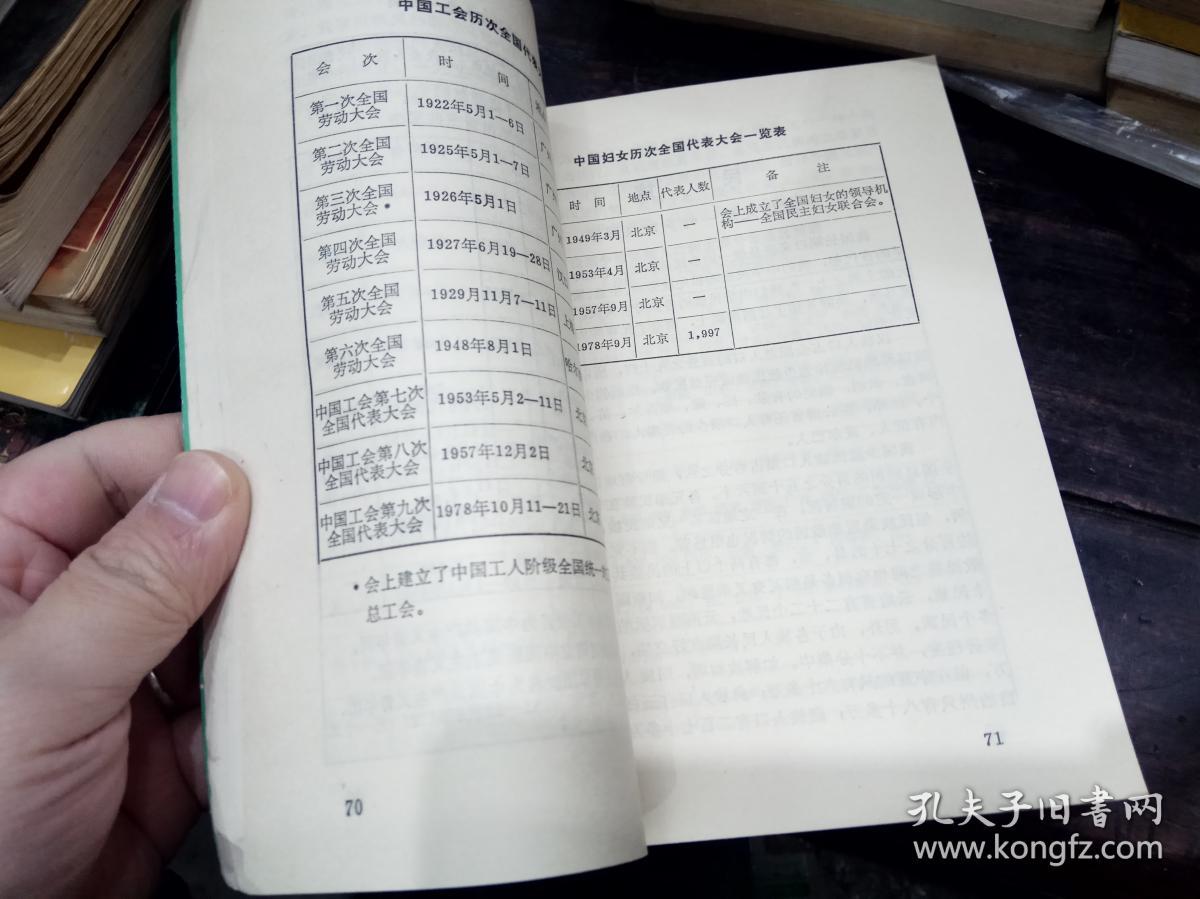 中国工会历次全国代表
会 次 时 间
第一次全国
劳动大会 1922年5月1—6日 广
第二次全国
劳动大会 1925年5月1—7日 广
第三次全国
劳动大会* 1926年5月1日 广
第四次全国
劳动大会 1927年6月19—28日
第五次全国
劳动大会 1929月11月7—11日 上
第六次全国
劳动大会 1948年8月1日 哈
中国工会第七次
全国代表大会 1953年5月2—11日 北
中国工会第八次
全国代表大会 1957年12月2日 北
中国工会第九次
全国代表大会 1978年10月11—21日 北
*会上建立了中国工人阶级全国统一
总工会。
70
中国妇女历次全国代表大会一览表
时 间 地点 代表人数 备 注
1949年3月 北京 — 会上成立了全国妇女的领导机
构——全国民主妇女联合会。
1953年4月 北京 —
1957年9月 北京 —
1978年9月 北京 1,997
71
孔夫子旧书网
www.kongfz.com